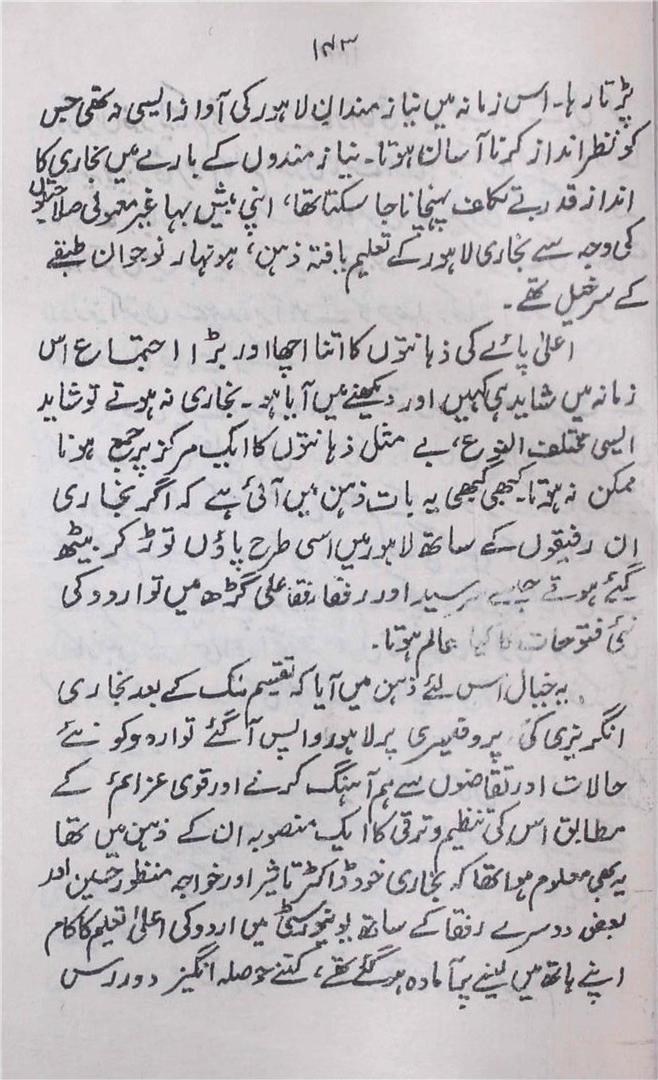 ۱۴۳
پڑتا رہا۔ اس زمانہ میں نیاز مندانِ لاہور کی آواز ایسی نہ تھی جس
کو نظر انداز کرنا آسان ہوتا۔ نیاز مندوں کے بارے میں بخاری کا
انداز قدرے تکلف پہچانا جا سکتا تھا، اپنی بیش بہا غیر معمولی صلاحیتوں
کی وجہ سے بخاری لاہور کے تعلیم یافتہ ذہین، ہونہار نوجوان طبقے
کے سرخیل تھے۔
اعلیٰ پائے کی ذہانتوں کا اتنا اچھا اور بڑا اجتماع اس
زمانہ میں شاید ہی کہیں اور دیکھنے میں آیا ہو۔ بخاری نہ ہوتے تو شاید
ایسی مختلف النوع، بے مثل ذہانتوں کا ایک مرکز پر جمع ہونا
ممکن نہ ہوتا۔ کبھی کبھی یہ بات ذہن میں آئی ہے کہ اگر بخاری
ان رفیقوں کے ساتھ لاہور میں اسی طرح پاؤں توڑ کر بیٹھ
گئے ہوتے جیسے سرسید اور رفقا علی گڑھ میں تو اردو کی
نئی فتوحات کا کیا عالم ہوتا۔
یہ خیال اس لئے ذہن میں آیا کہ تقسیم ملک کے بعد بخاری
انگریزی کی پروفیسری پر لاہور واپس آ گئے تو اردو کو نئے
حالات اور تقاضوں سے ہم آہنگ کرنے اور قومی عزائم کے
مطابق اس کی تنظیم و ترقی کا ایک منصوبہ ان کے ذہن میں تھا
یہ بھی معلوم ہوا تھا کہ بخاری خود ڈاکٹر تاثیر اور خواجہ منظور حسین اور
بعض دوسرے رفقا کے ساتھ یونیورسٹی میں اردو کی اعلیٰ تعلیم کا کام
اپنے ہاتھ میں لینے پر آمادہ ہو گئے تھے، کتنے حوصلہ انگیز دور رس